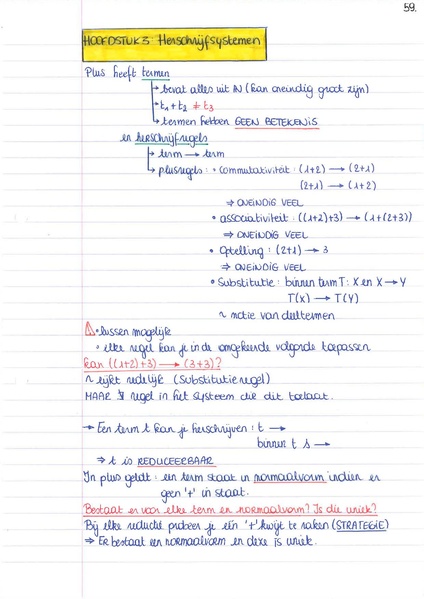 59.
HOOFDSTUK 3: Herschrijfsystemen
Plus heeft termen
↳ bevat alles uit ℕ (kan oneindig groot zijn)
↳ t₁ + t₂ ≠ t₃
↳ termen hebben GEEN BETEKENIS
en herschrijfregels
↳ term → term
↳ plusregels: • Commutativiteit: (1+2) → (2+1)
(2+1) → (1+2)
⇒ ONEINDIG VEEL
• associativiteit: ((1+2)+3) → (1+(2+3))
⇒ ONEINDIG VEEL
• Optelling: (2+1) → 3
⇒ ONEINDIG VEEL
• Substitutie: binnen term T: X en X → Y
T(X) → T(Y)
~ notie van deeltermen
⚠ • lussen mogelijk
• elke regel kan je in de omgekeerde volgorde toepassen
kan ((1+2)+3) → (3+3)?
~ lijkt redelijk (Substitutieregel)
MAAR ∄ regel in het systeem die dit toelaat.
→ Een term t kan je herschrijven: t →
binnen t s →
⇒ t is REDUCEERBAAR
In plus geldt: een term staat in normaalvorm indien er
geen '+' in staat.
Bestaat er voor elke term en normaalvorm? Is die uniek?
Bij elke reductie probeer je één '+' kwijt te raken (STRATEGIE)
⇒ Er bestaat een normaalvorm en deze is uniek.